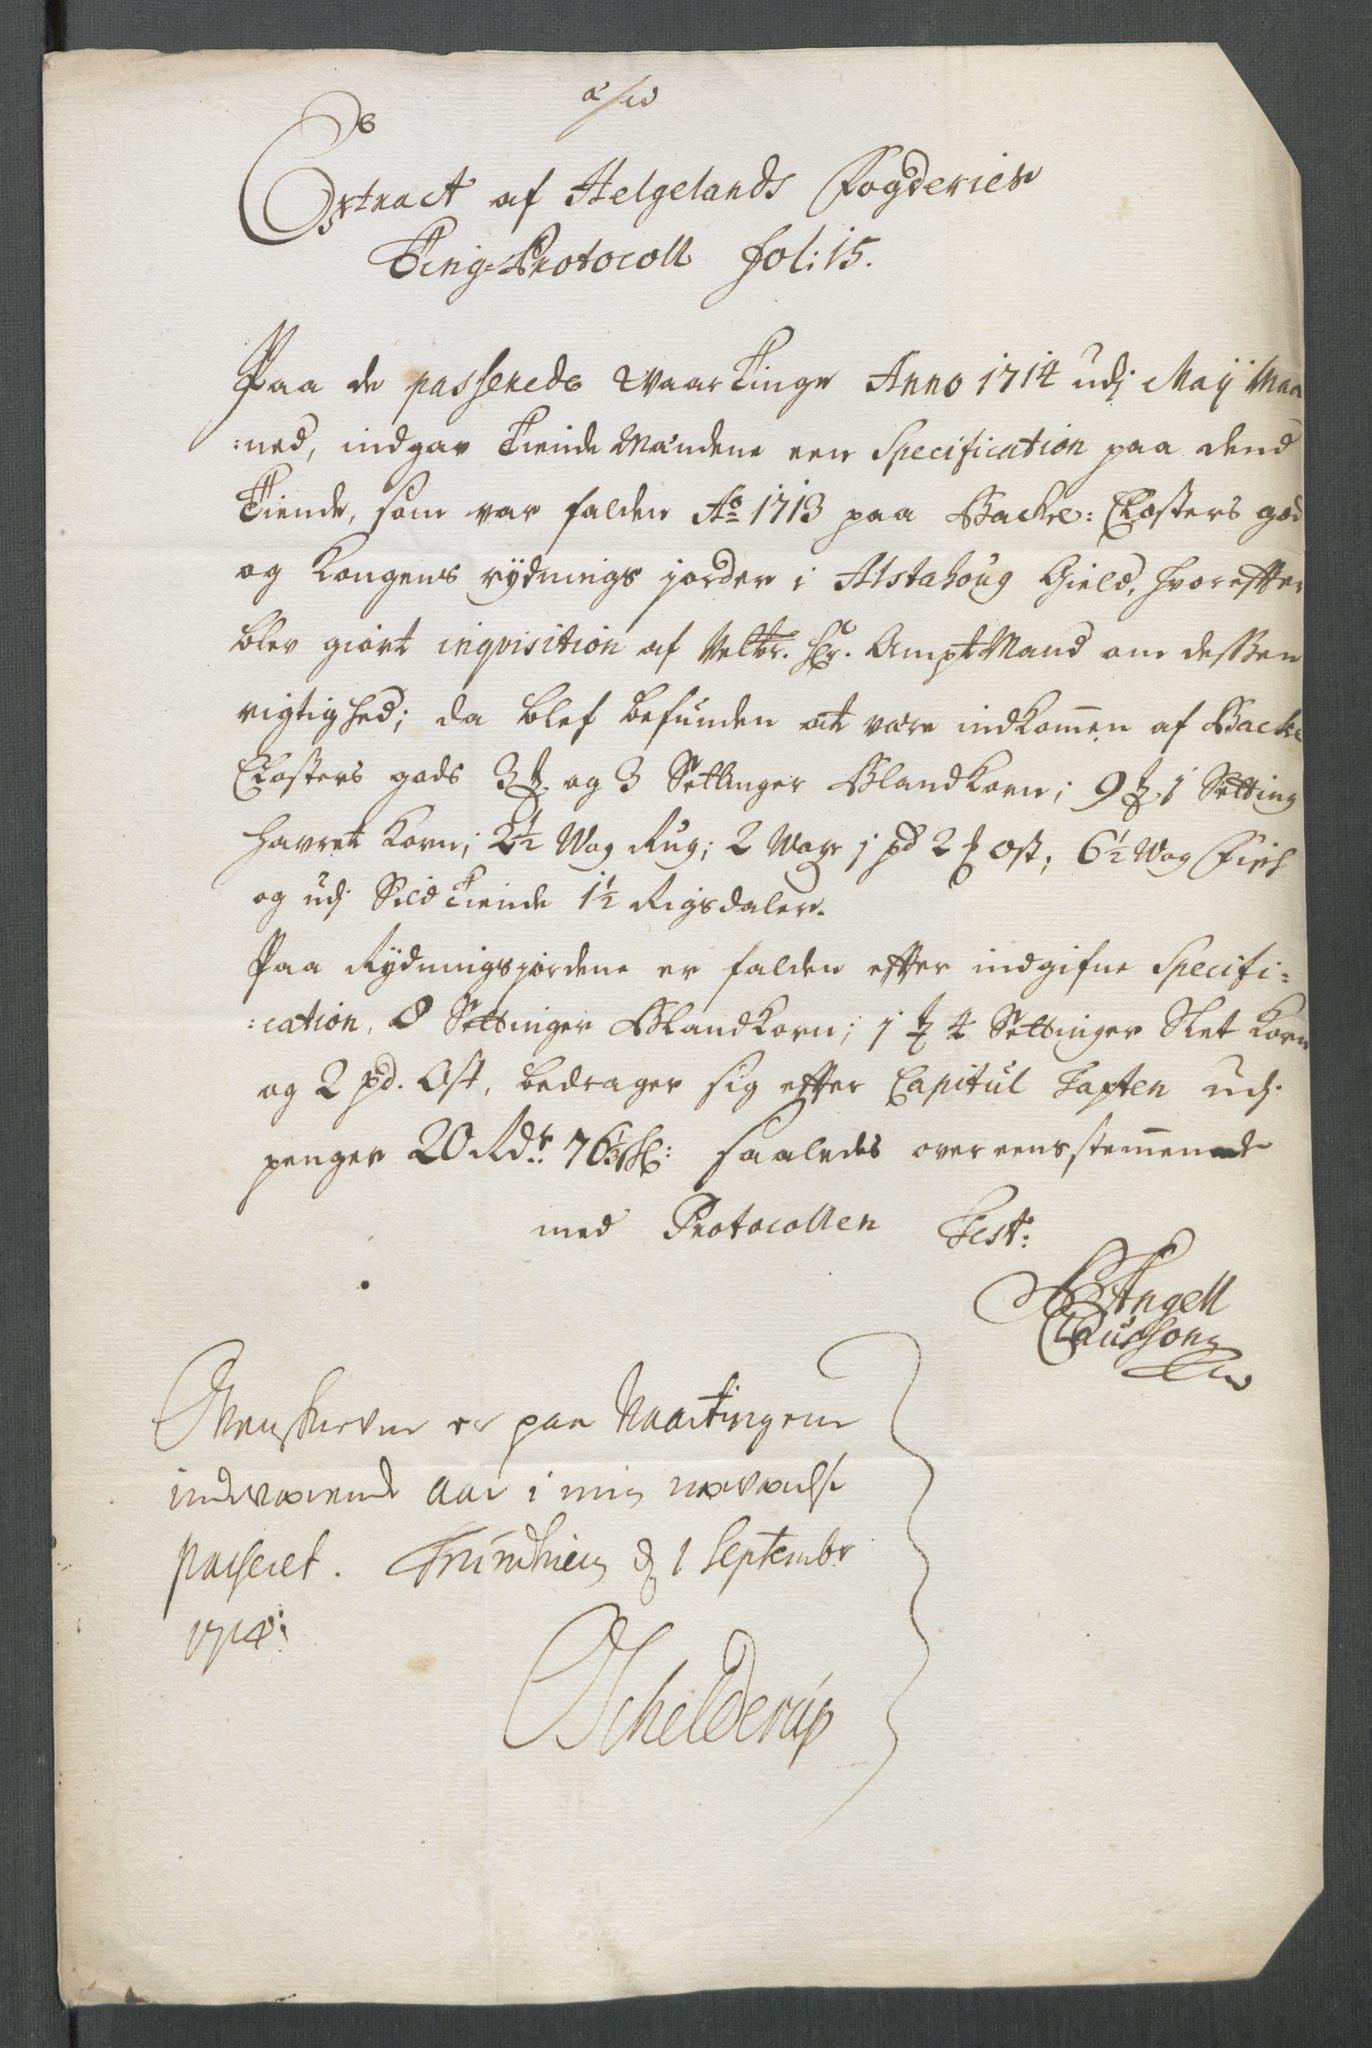 Extract af Helgelands Fogderies
Ting-Protocoll fol: 15.
Paa de passerede Waar Tinge Anno 1714 udj Maij Maa
:ned, indgav Tiende Mændene een Specification paa dend
Tiende, som var falden Ao 1713 paa Backe: Closters god
og Kongens rÿdnings jorder i Alstahoug Gield, hvorefter
blev giort inqvisition af Velbr. Hr. AmptMand om dessen
rigtighed; da blef befunden at være indkommen af Backe
Closters gods 3 og 3 Settinger Blandkorn; 9 1 Setting
Havret Korn; 2½ Wog Rug; 2 Woge 1 pd 2 Ost; 6½ Wog Fisch
og udj Sild Tiende 1½ Rigsdaler.
Paa Rÿdningsjordene er falden efter indgifne Specifi=
:cation, 8 Settinger Blandkorn; 1 4 Settinger Slet Korn
og 2 pd. Ost, bedrager sig efter Capitul Taxten udj
penger 20 Rdr. 76⅓ s: saaledes overeensstemmende
med Protocollen Test:
Angell
Clausson
Ovenskrevne er paa Waartingene
indeværende aar i min nærværelse
passeret. Trundhiem d 1 Septembr
1714:
Schelderup